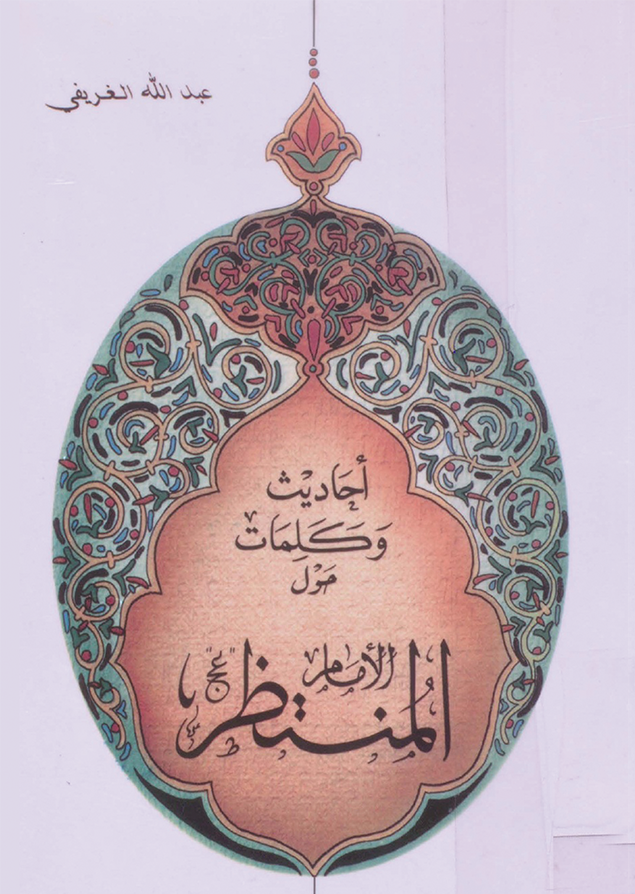 عبد الله الغريفي
أحاديث
وكلمات
حول
الإمام
المنتظر "عج"